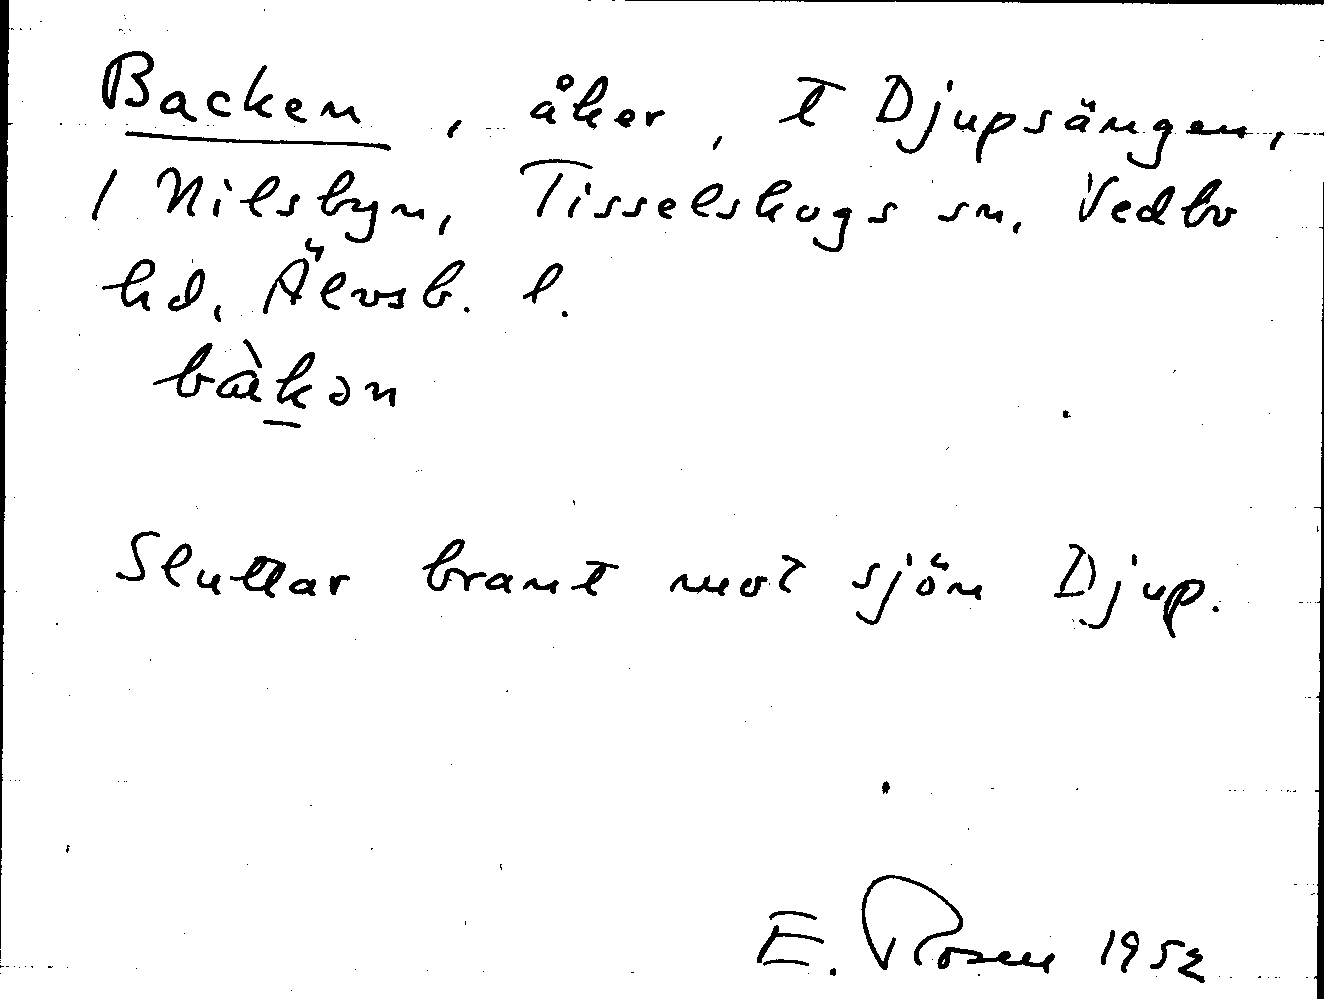 Backen, åker, t Djupsängen,
/ Nilsbyn, Tisselskogs sn, Vedbo
hd, Älvsb. l.
bàk̲ən
Sluttar brant mot sjön Djup.
E. Rosen 1952